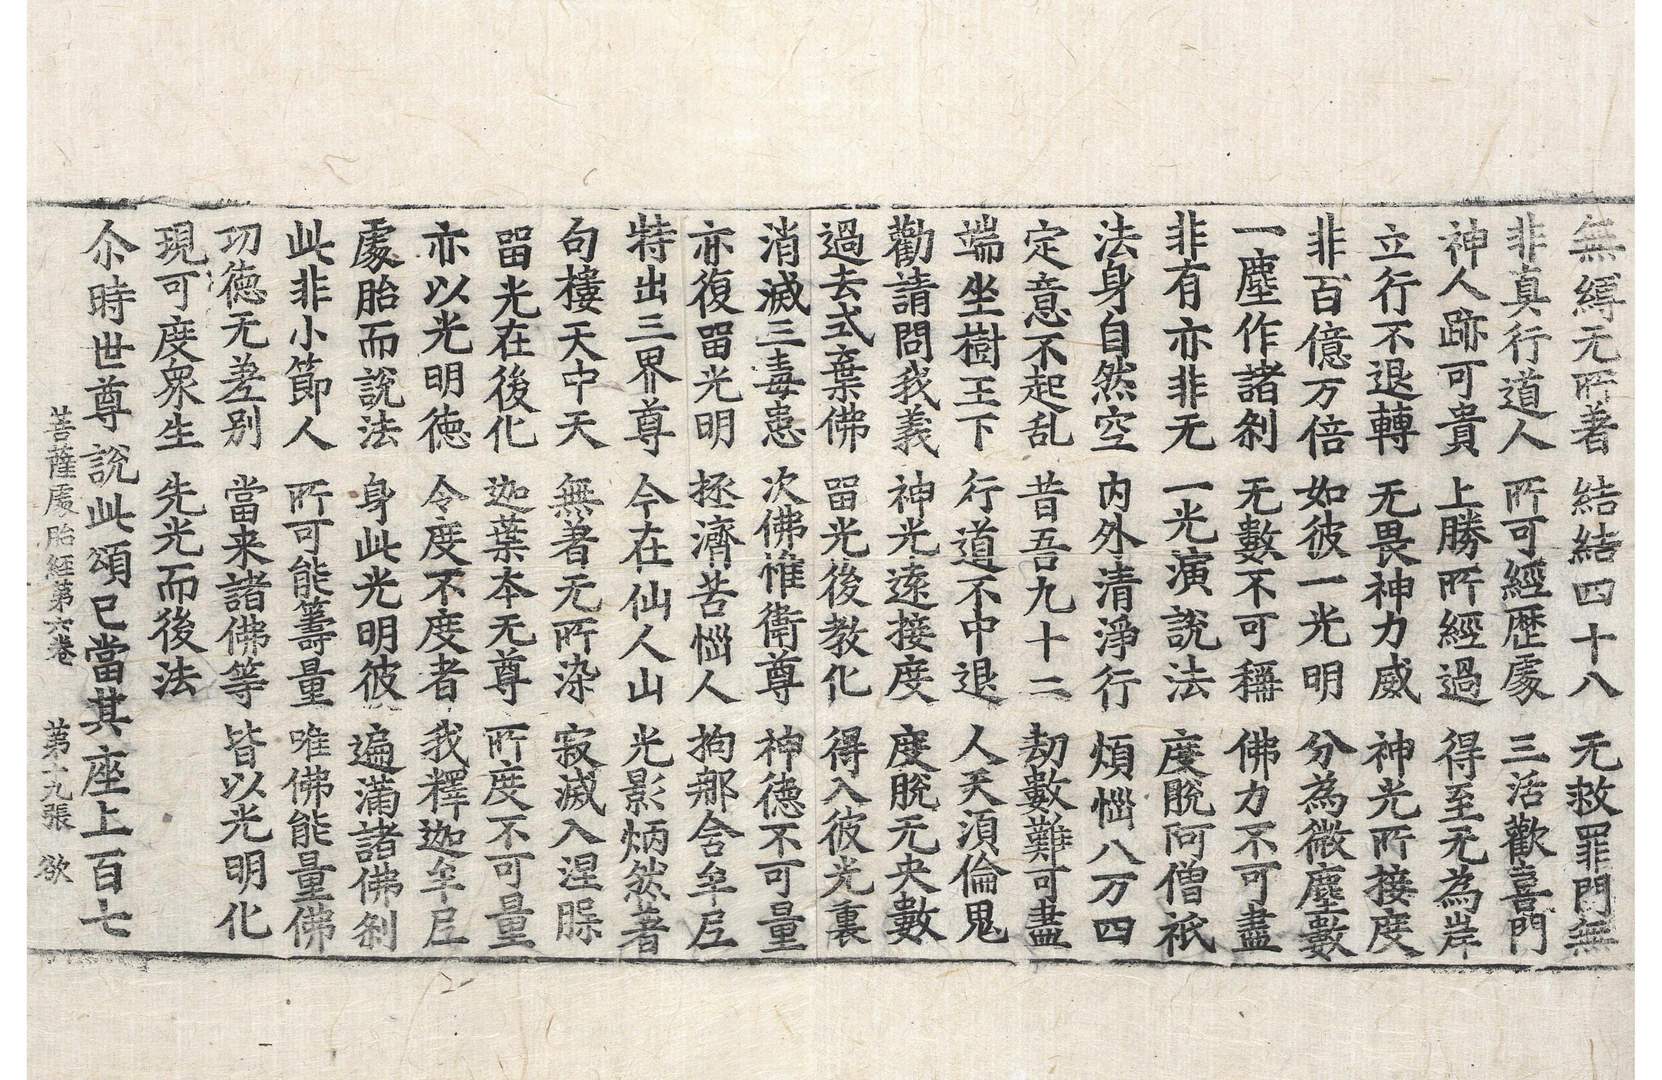 無縛无所著 結結四十八 无救罪門無
非真行道人 所可經歷處 三活歡喜門
神人跡可貴 上勝所經過 得至无為岸
立行不退轉 无畏神力威 神光所接度
非百億万倍 如彼一光明 分為微塵數
一塵作諸刹 无數不可稱 佛力不可盡
非有亦非无 一光演說法 度脫阿僧祇
法身自然空 內外清淨行 煩惱八万四
定意不起乱 昔吾九十二 劫數難可盡
端坐樹王下 行道不中退 人天湏倫鬼
勸請問我義 神光遠接度 度脫无央數
過去式棄佛 留光後教化 得入彼光裏
消滅三毒患 次佛惟衛尊 神德不可量
亦復留光明 拯濟苦惱人 拘那含牟尼
特出三界尊 今在仙人山 光影炳然著
句樓天中天 無著无所染 寂滅入涅槃
留光在後化 迦葉本无尊 所度不可量
亦以光明德 令度不度者 我釋迦牟尼
處胎而說法 身此光明彼 遍滿諸佛刹
此非小節人 所可能籌量 唯佛能量佛
功德无差別 當来諸佛等 皆以光明化
現可度衆生 先光而後法
尒時世尊說此頌已當其座上百七
菩薩處胎經第六卷 第十九張 欲